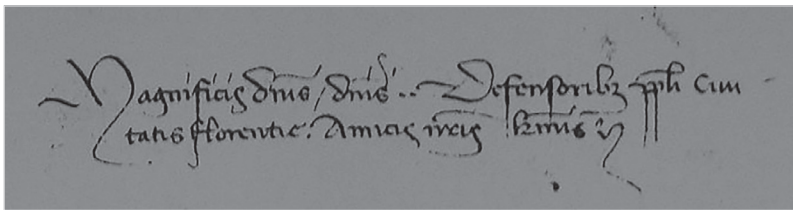 Magnificis dn̄is / dn̄is .. Defensoribꝫ pp̄li Ciui
tatis florentie. Amicis nr̄is kmīs